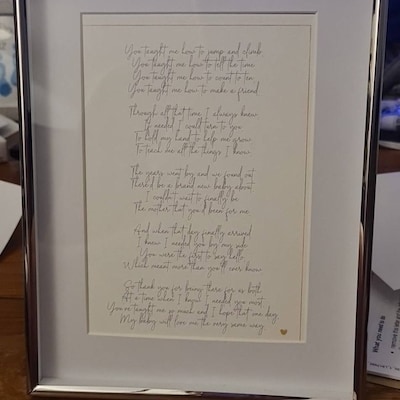 You taught me how to jump and climb
You taught me how to tell the time
You taught me how to count to ten
You taught me how to make a friend
Through all that time I always knew
If needed I could turn to you
To hold my hand to help me grow
To teach me all the things I know
The years went by and we found out
There'd be a brand new baby about
I couldn't wait to finally be
The mother that you'd been for me
And when that day finally arrived
I knew I needed you by my side
You were the first to say hello
Which meant more than you'll ever know
So thank you for being there for us both
At a time when I knew I needed you most
You've taught me so much and I hope that one day
My baby will love me the very same way
What you need to do